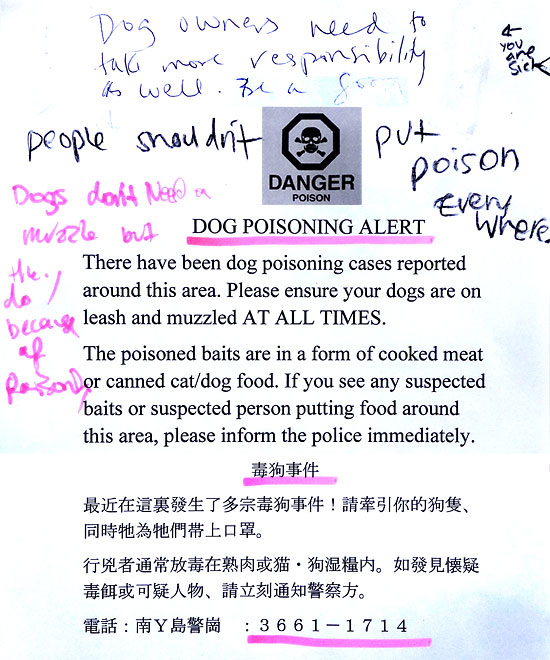 Dog owners need to
take more responsibility
as well. Be a
←
you
are
sick
people shouldn't put
poison
Every
Where
DANGER
POISON
Dogs don't Need a
muzzle but
they
do
because
of
DOG POISONING ALERT
There have been dog poisoning cases reported
around this area. Please ensure your dogs are on
leash and muzzled AT ALL TIMES.
The poisoned baits are in a form of cooked meat
or canned cat/dog food. If you see any suspected
baits or suspected person putting food around
this area, please inform the police immediately.
毒狗事件
最近在這裏發生了多宗毒狗事件！請牽引你的狗隻、
同時牠為牠們帯上口罩。
行兇者通常放毒在熟肉或猫・狗湿糧内。如發見懷疑
毒餌或可疑人物、請立刻通知警察方。
電話：南Ｙ島警崗　：３６６１－１７１４